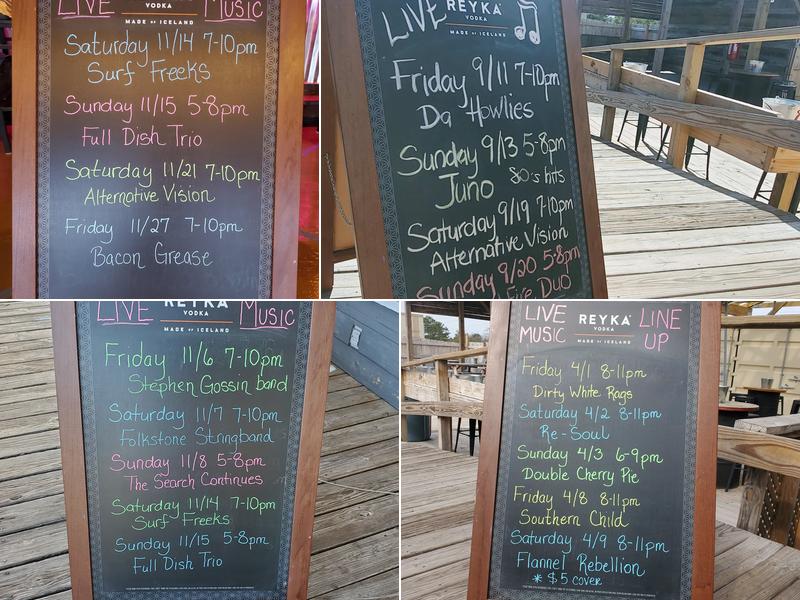 LIVE MUSIC
VODKA
MADE OF ICELAND
Saturday 11/14 7-10pm
Surf Freeks
Sunday 11/15 5-8pm
Full Dish Trio
Saturday 11/21 7-10pm
Alternative Vision
Friday 11/27 7-10pm
Bacon Grease
LIVE REYKA
VODKA
MADE OF ICELAND
Friday 9/11 7-10pm
Da Howlies
Sunday 9/13 5-8pm
Juno 80's hits
Saturday 9/19 7-10pm
Alternative Vision
Sunday 9/20 5-8pm
Duo
LIVE REYKA MUSIC
VODKA
MADE OF ICELAND
Friday 11/6 7-10pm
Stephen Gossin band
Saturday 11/7 7-10pm
Folkstone Stringband
Sunday 11/8 5-8pm
The Search Continues
Saturday 11/14 7-10pm
Surf Freeks
Sunday 11/15 5-8pm
Full Dish Trio
LIVE MUSIC
REYKA
VODKA
MADE OF ICELAND
LINE UP
Friday 4/1 8-11pm
Dirty White Rags
Saturday 4/2 8-11pm
Re-Soul
Sunday 4/3 6-9pm
Double Cherry Pie
Friday 4/8 8-11pm
Southern Child
Saturday 4/9 8-11pm
Flannel Rebellion
* $5 cover